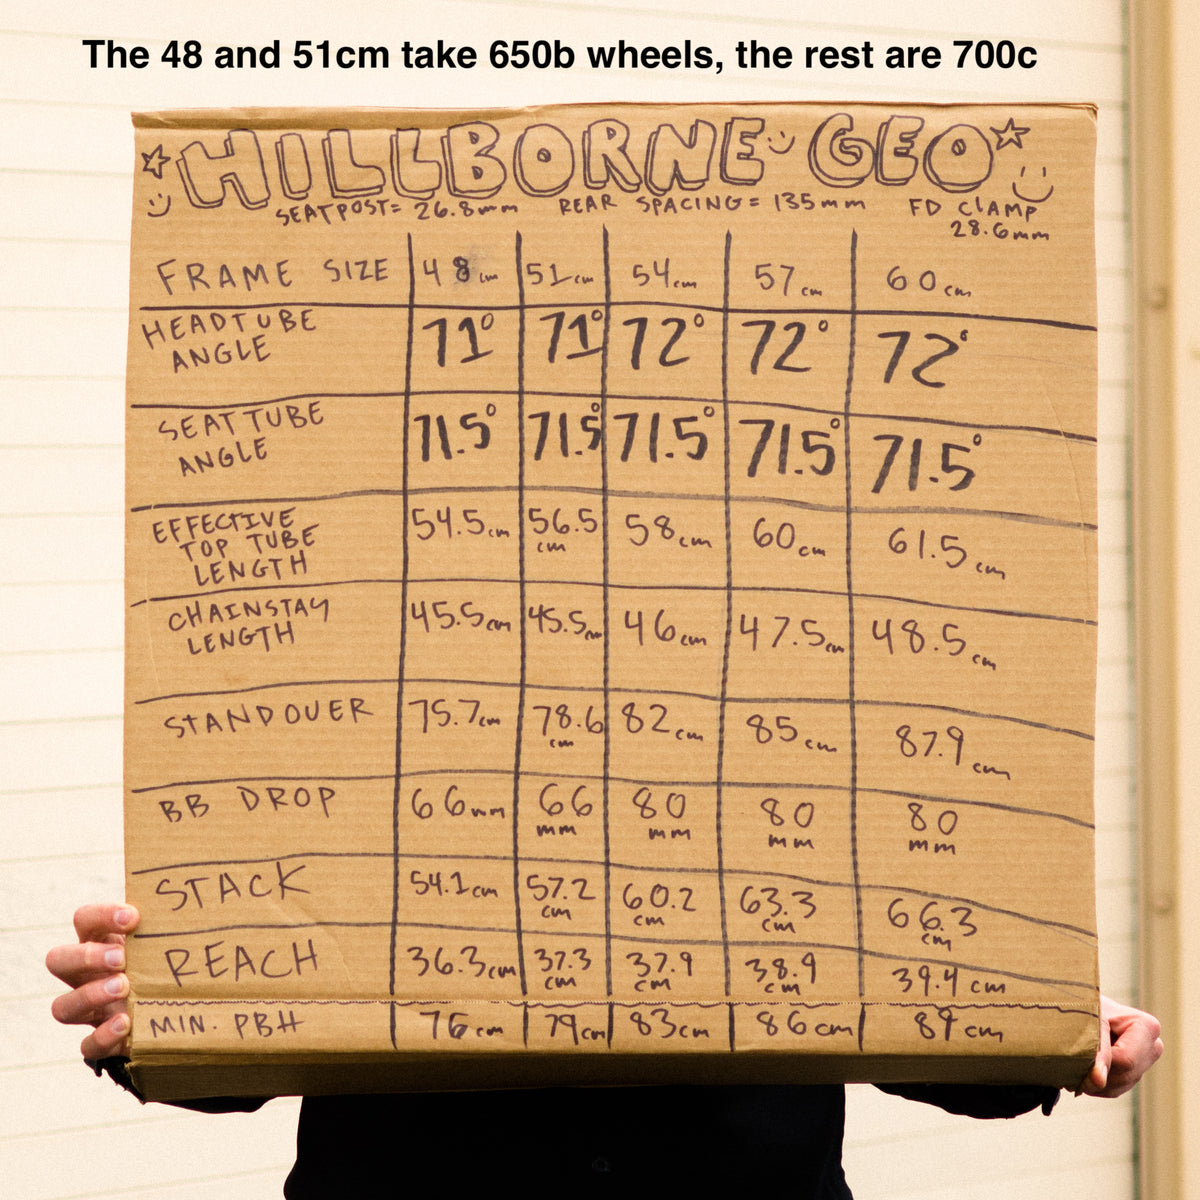 The 48 and 51cm take 650b wheels, the rest are 700c
HILLBORNE GEO
SEATPOST= 26.8mm REAR SPACING= 135mm FD CLAMP
28.6mm
FRAME SIZE 48cm 51cm 54cm 57cm 60cm
HEADTUBE
ANGLE 71° 71° 72° 72° 72°
SEAT TUBE
ANGLE 71.5° 71.5° 71.5° 71.5° 71.5°
EFFECTIVE
TOP TUBE
LENGTH 54.5cm 56.5cm 58cm 60cm 61.5cm
CHAINSTAY
LENGTH 45.5cm 45.5cm 46cm 47.5cm 48.5cm
STANDOVER 75.7cm 78.6cm 82cm 85cm 87.9cm
BB DROP 66mm 66mm 80mm 80mm 80mm
STACK 54.1cm 57.2cm 60.2cm 63.3cm 66.3cm
REACH 36.3cm 37.3cm 37.9cm 38.9cm 39.4cm
MIN. PBH 76cm 79cm 83cm 86cm 89cm